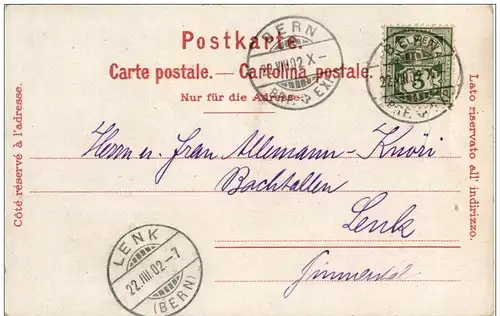 Postkarte.
Carte postale. — Cartolina postale.
Nur für die Adresse.
Côté réservé à l'adresse.
Lato riservato all' indirizzo.
BERN
22.VIII.02.X-
BRF. EXP.
BERN
22.VIII.02.X-
5
Herrn u. Frau Allemann-Knöri
Bachtallen
Lenk
Simmental
LENK
22.VIII.02.-7
(BERN)